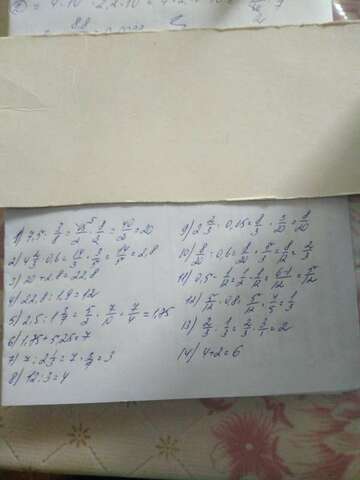 1) 7,5 : 3/8 = 75/10 · 8/3 = 40/2 = 20
2) 4 2/3 · 0,6 = 14/3 · 3/5 = 14/5 = 2,8
3) 20 + 2,8 = 22,8
4) 22,8 : 1,9 = 12
5) 2,5 : 1 3/7 = 5/2 · 7/10 = 7/4 = 1,75
6) 1,75 + 5,25 = 7
7) 7 : 2 1/3 = 7 · 3/7 = 3
8) 12 : 3 = 4
9) 2 2/3 · 0,15 = 8/3 · 3/20 = 8/20
10) 8/20 : 0,6 = 8/20 · 5/3 = 8/12 = 2/3
11) 0,5 - 1/12 = 1/2 - 1/12 = 6-1/12 = 5/12
12) 5/12 · 0,8 = 5/12 · 4/5 = 1/3
13) 2/3 : 1/3 = 2/3 · 3/1 = 2
14) 4 + 2 = 6